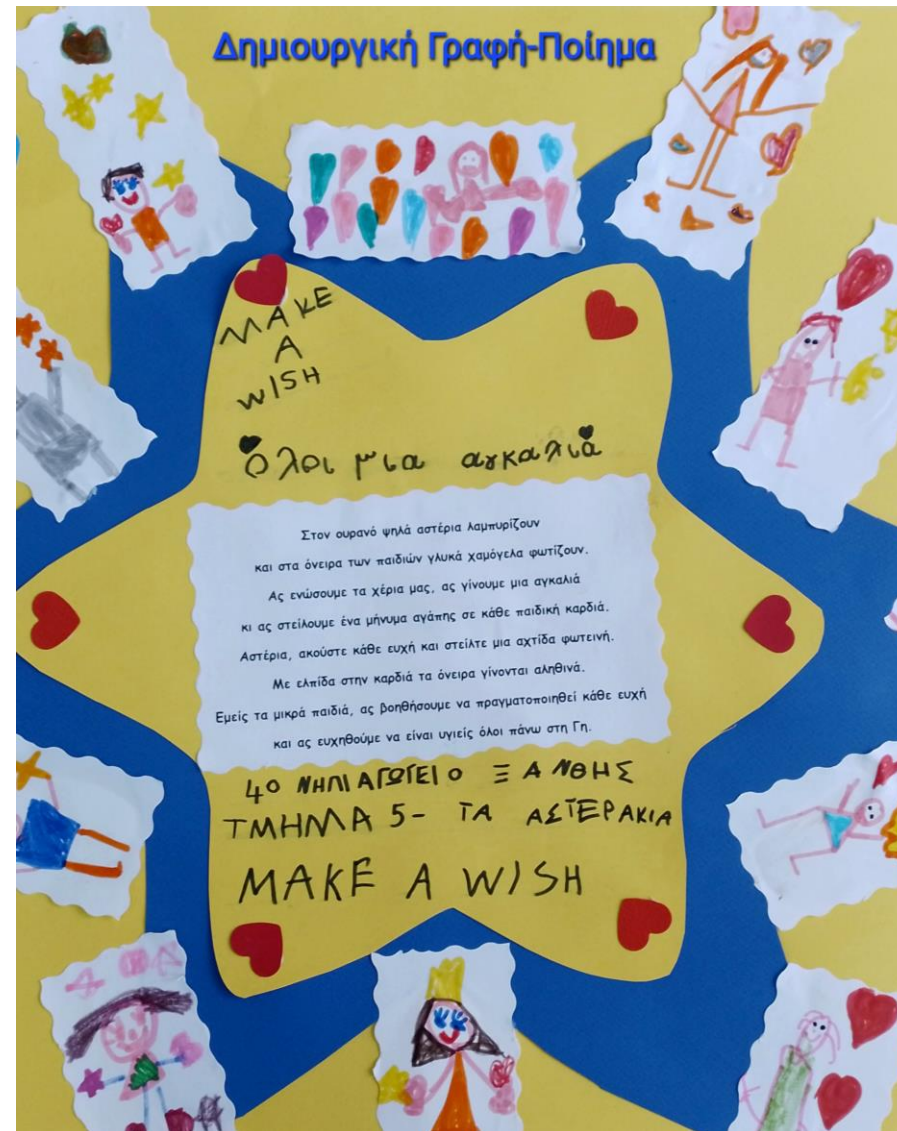 Δημιουργική Γραφή-Ποίημα
MAKE
A
WISH
Όλοι μια αγκαλιά
Στον ουρανό ψηλά αστέρια λαμπυρίζουν
και στα όνειρα των παιδιών γλυκά χαμόγελα φωτίζουν.
Ας ενώσουμε τα χέρια μας, ας γίνουμε μια αγκαλιά
κι ας στείλουμε ένα μήνυμα αγάπης σε κάθε παιδική καρδιά.
Αστέρια, ακούστε κάθε ευχή και στείλτε μια αχτίδα φωτεινή.
Με ελπίδα στην καρδιά τα όνειρα γίνονται αληθινά.
Εμείς τα μικρά παιδιά, ας βοηθήσουμε να πραγματοποιηθεί κάθε ευχή
και ας ευχηθούμε να είναι υγιείς όλοι πάνω στη Γη.
4Ο ΝΗΠΙΑΓΩΓΕΙΟ ΞΑΝΘΗΣ
ΤΜΗΜΑ 5- ΤΑ ΑΣΤΕΡΑΚΙΑ
MAKE A WISH